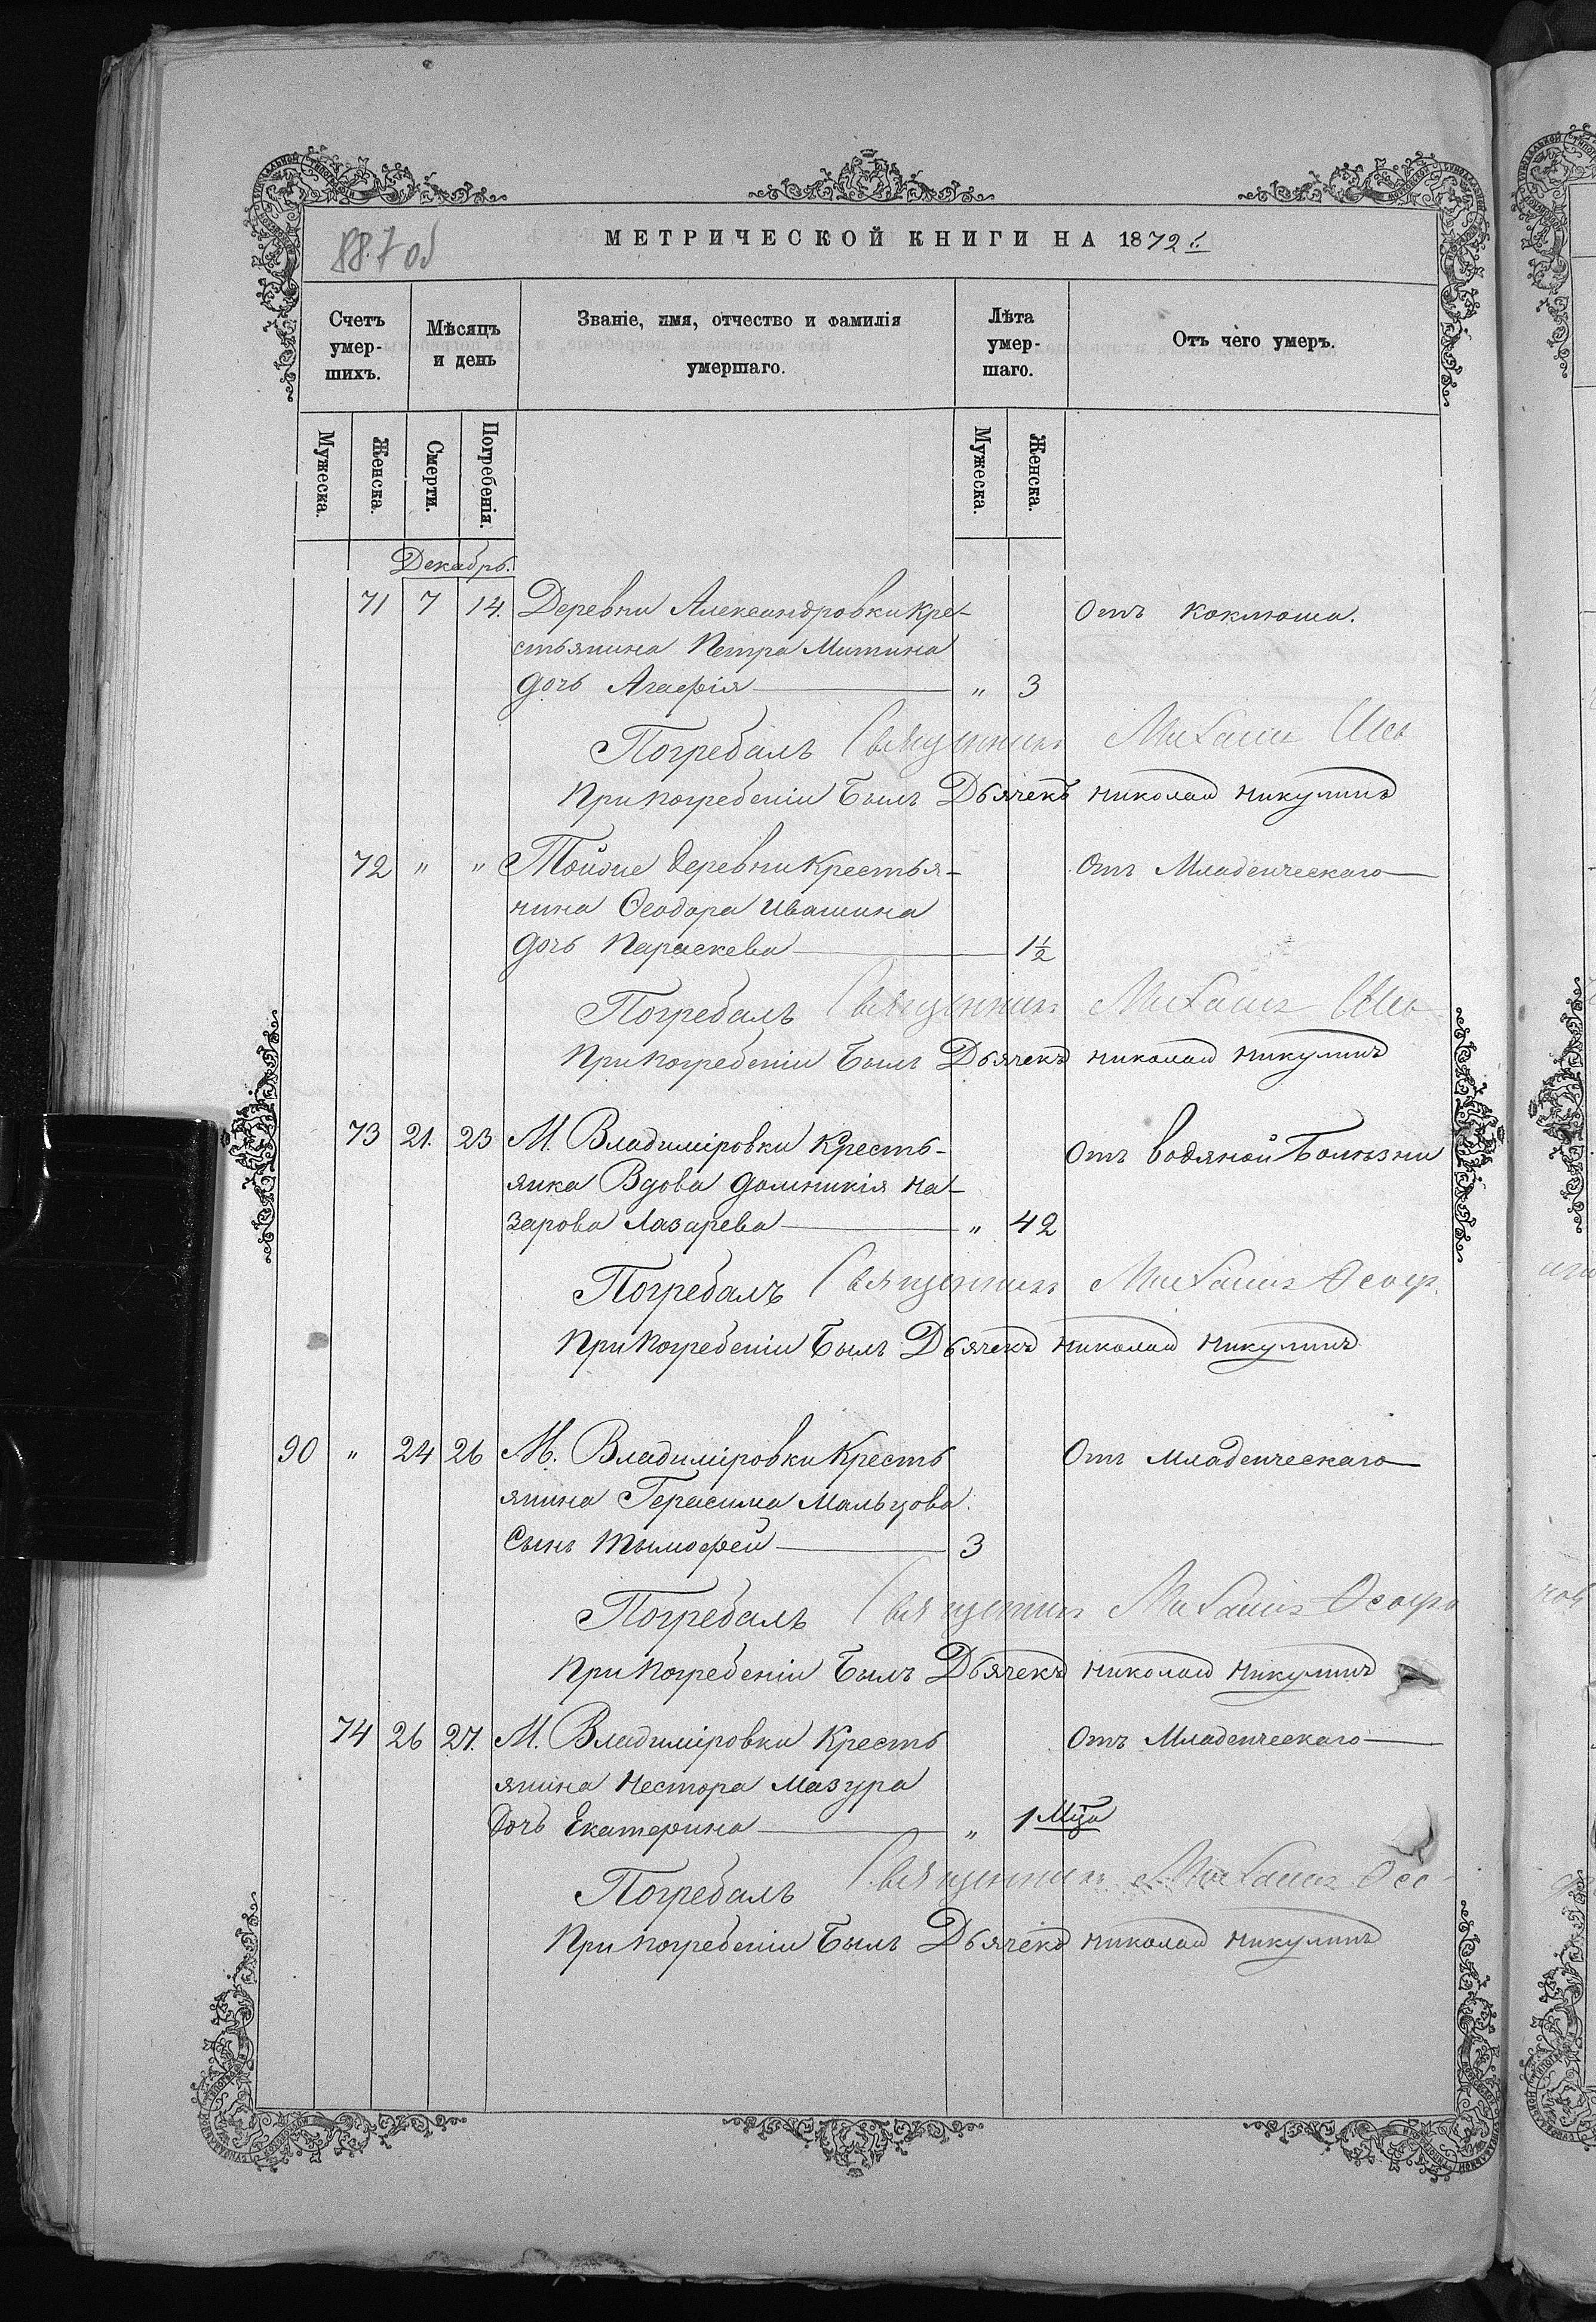 887 об
МЕТРИЧЕСКОЙ КНИГИ НА 1872 г.
Счетъ умер-шихъ.
Мѣсяцъ и день
Званіе, имя, отчество и фамилія умершаго.
Лѣта умер-шаго.
Отъ чего умеръ.
Мужеска.
Женска.
Смерти.
Погребенія.
Мужеска.
Женска.
Декабрь.
71 7 14. Деревни Александровки кре- Отъ коклюша.
стьянина Петра Митина
дочь Агафія " 3
Погребалъ Священникъ Михаилъ
При погребеніи былъ Дьячекъ Николай Никулинъ
72 " " Тойже деревни крестья- Отъ Младенческаго
нина Ѳеодора Ивашина
дочь Параскева 1½
Погребалъ Священникъ Михаилъ
При погребеніи былъ Дьячекъ Николай Никулинъ
73 21. 23 М. Владиміровки Кресть- Отъ водяной болѣзни
янка Вдова Домникія На-
зарова Лазарева " 42
Погребалъ Священникъ Михаилъ
При погребеніи былъ Дьячекъ Николай Никулинъ
90 " 24 26 М. Владиміровки Кресть Отъ младенческаго
янина Герасима Мальцова
Сынъ Тымофей 3
Погребалъ Священникъ Михаилъ
При погребеніи былъ Дьячекъ Николай Никулинъ
74 26 27. М. Владиміровки Кресть Отъ Младенческаго
янина Нестора Мазура
дочь Екатерина " 1 М-ца
Погребалъ Священникъ Михаилъ
При погребеніи былъ Дьячекъ Николай Никулинъ